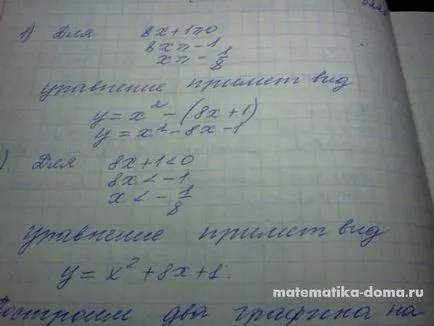 1) Для 8x+1≥0
8x≥-1
x≥-1/8
уравнение примет вид
y=x²-(8x+1)
y=x²-8x-1
) Для 8x+1<0
8x<-1
x<-1/8
уравнение примет вид
y=x²+8x+1.
Построим два графика на
matematika-doma.ru